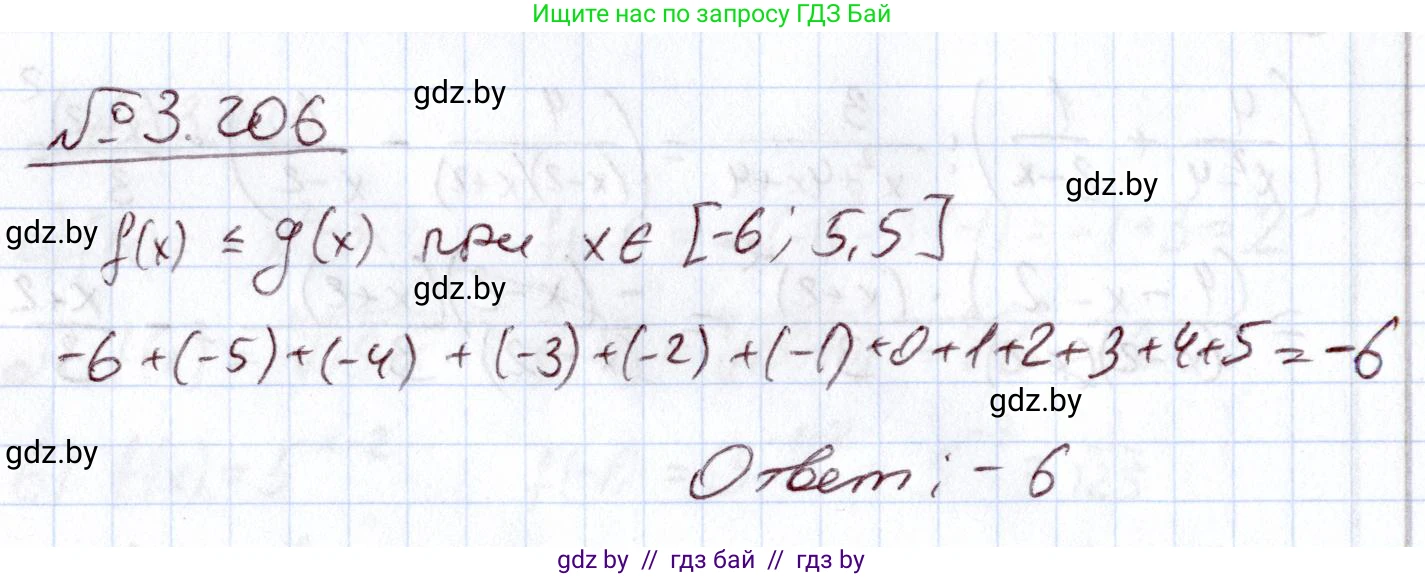 Ищите нас по запросу ГДЗ Бай
№ 3.206
gdz.by
gdz.by
gdz.by
f(x) ≤ g(x) при x ∈ [-6; 5,5]
gdz.by
-6 + (-5) + (-4) + (-3) + (-2) + (-1) + 0 + 1 + 2 + 3 + 4 + 5 = -6
gdz.by
gdz.by
Ответ: -6
gdz.by // гдз бай // гдз by